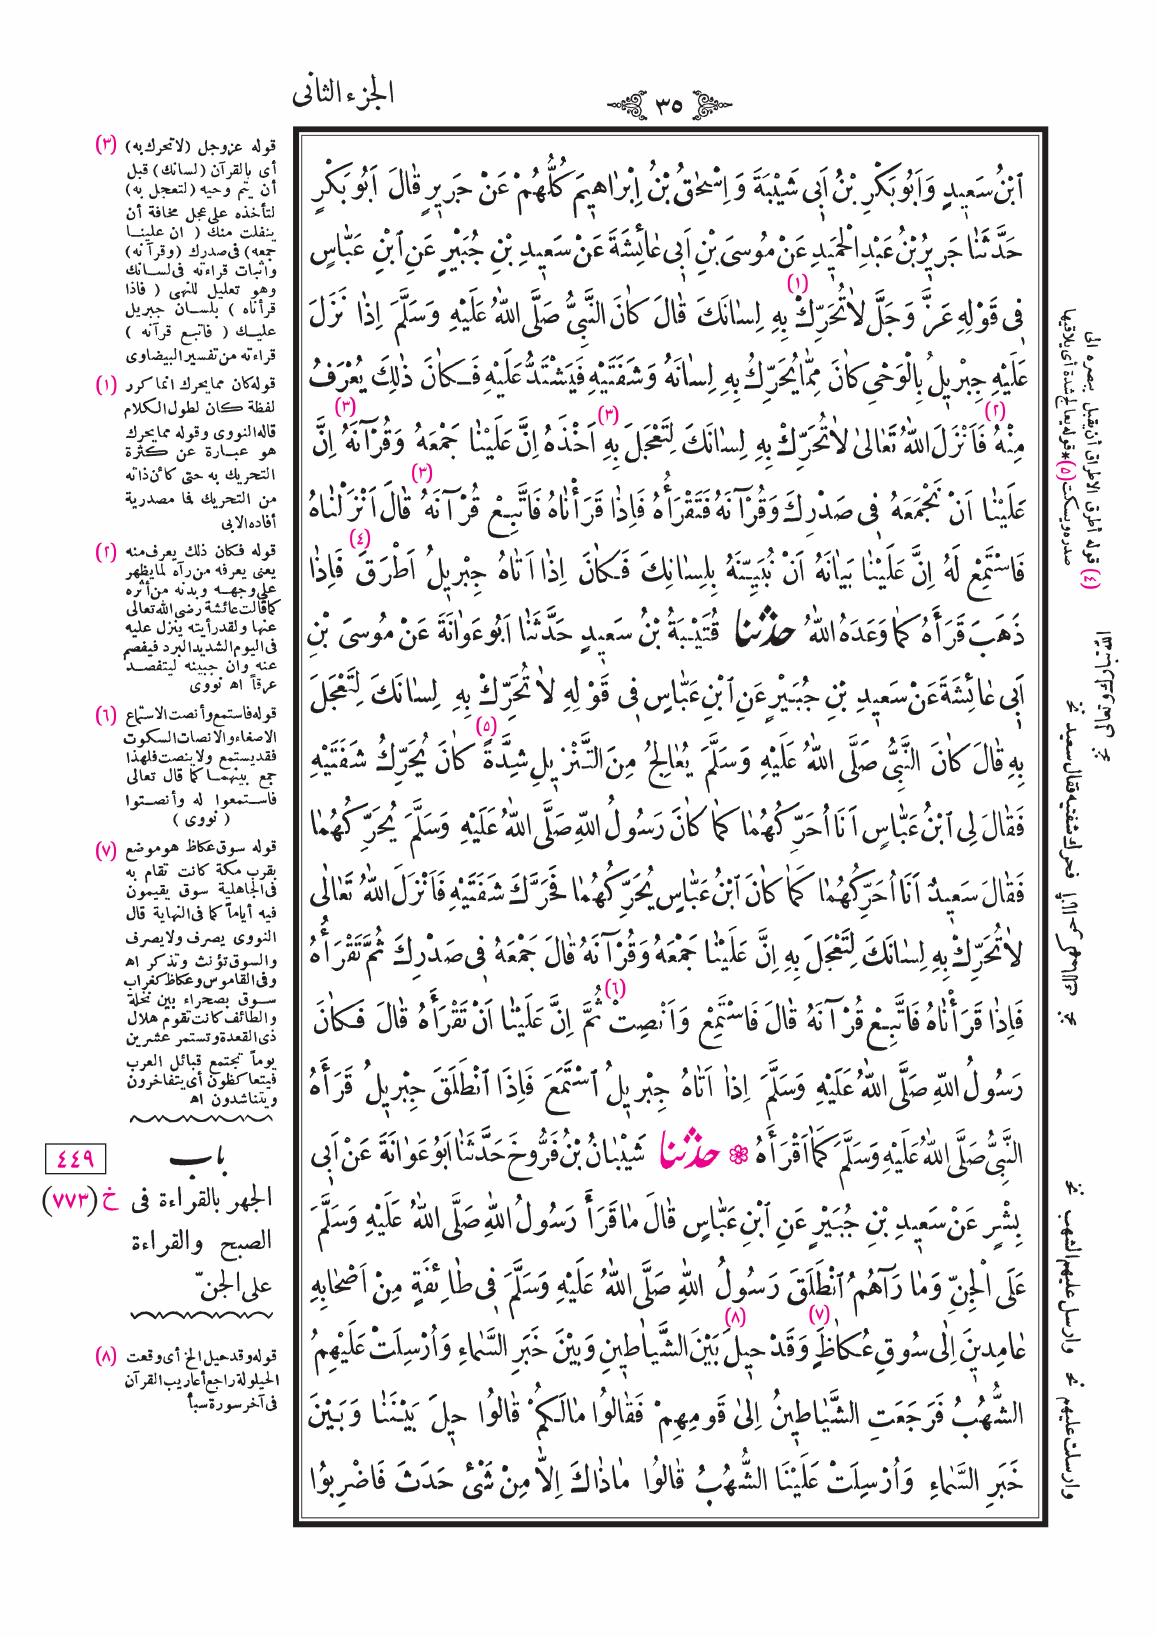 الجزء الثانى
٣٥
اَبْنُ سَعِيدٍ وَاَبُو بَكْرِ بْنُ اَبِى شَيْبَةَ وَ اِسْحٰقُ بْنُ اِبْرَاهِيمَ كُلُّهُمْ عَنْ جَرِيرٍ قَالَ اَبُو بَكْرٍ
حَدَّثَنَا جَرِيرُ بْنُ عَبْدِ الْحَمِيدِ عَنْ مُوسَى بْنِ اَبِى عَائِشَةَ عَنْ سَعِيدِ بْنِ جُبَيْرٍ عَنِ ابْنِ عَبَّاسٍ
(١)
فِى قَوْلِهِ عَزَّ وَجَلَّ لَا تُحَرِّكْ بِهِ لِسَانَكَ قَالَ كَانَ النَّبِىُّ صَلَّى اللهُ عَلَيْهِ وَسَلَّمَ اِذَا نَزَلَ
عَلَيْهِ جِبْرِيلُ بِالْوَحْىِ كَانَ مِمَّا يُحَرِّكُ بِهِ لِسَانَهُ وَشَفَتَيْهِ فَيَشْتَدُّ عَلَيْهِ فَكَانَ ذٰلِكَ يُعْرَفُ
(٢) (٣) (٣)
مِنْهُ فَاَنْزَلَ اللهُ تَعَالٰى لَا تُحَرِّكْ بِهِ لِسَانَكَ لِتَعْجَلَ بِهِ اَخْذَهُ اِنَّ عَلَيْنَا جَمْعَهُ وَقُرْآنَهُ اِنَّ
(٣)
عَلَيْنَا اَنْ نَجْمَعَهُ فِى صَدْرِكَ وَقُرْآنَهُ فَتَقْرَأُهُ فَاِذَا قَرَأْنَاهُ فَاتَّبِعْ قُرْآنَهُ قَالَ اَنْزَلْنَاهُ
(٤)
فَاسْتَمِعْ لَهُ اِنَّ عَلَيْنَا بَيَانَهُ اَنْ نُبَيِّنَهُ بِلِسَانِكَ فَكَانَ اِذَا اَتَاهُ جِبْرِيلُ اَطْرَقَ فَاِذَا
ذَهَبَ قَرَأَهُ كَمَا وَعَدَهُ اللهُ حدثنا قُتَيْبَةُ بْنُ سَعِيدٍ حَدَّثَنَا اَبُو عَوَانَةَ عَنْ مُوسَى بْنِ
اَبِى عَائِشَةَ عَنْ سَعِيدِ بْنِ جُبَيْرٍ عَنِ ابْنِ عَبَّاسٍ فِى قَوْلِهِ لَا تُحَرِّكْ بِهِ لِسَانَكَ لِتَعْجَلَ
(٥)
بِهِ قَالَ كَانَ النَّبِىُّ صَلَّى اللهُ عَلَيْهِ وَسَلَّمَ يُعَالِجُ مِنَ التَّنْزِيلِ شِدَّةً كَانَ يُحَرِّكُ شَفَتَيْهِ
فَقَالَ لِى ابْنُ عَبَّاسٍ اَنَا اُحَرِّكُهُمَا كَمَا كَانَ رَسُولُ اللهِ صَلَّى اللهُ عَلَيْهِ وَسَلَّمَ يُحَرِّكُهُمَا
فَقَالَ سَعِيدٌ اَنَا اُحَرِّكُهُمَا كَمَا كَانَ ابْنُ عَبَّاسٍ يُحَرِّكُهُمَا فَحَرَّكَ شَفَتَيْهِ فَاَنْزَلَ اللهُ تَعَالٰى
لَا تُحَرِّكْ بِهِ لِسَانَكَ لِتَعْجَلَ بِهِ اِنَّ عَلَيْنَا جَمْعَهُ وَقُرْآنَهُ قَالَ جَمْعَهُ فِى صَدْرِكَ ثُمَّ تَقْرَأَهُ
(٦)
فَاِذَا قَرَأْنَاهُ فَاتَّبِعْ قُرْآنَهُ قَالَ فَاسْتَمِعْ وَاَنْصِتْ ثُمَّ اِنَّ عَلَيْنَا اَنْ تَقْرَأَهُ قَالَ فَكَانَ
رَسُولُ اللهِ صَلَّى اللهُ عَلَيْهِ وَسَلَّمَ اِذَا اَتَاهُ جِبْرِيلُ اسْتَمَعَ فَاِذَا انْطَلَقَ جِبْرِيلُ قَرَأَهُ
النَّبِىُّ صَلَّى اللهُ عَلَيْهِ وَسَلَّمَ كَمَا اَقْرَأَهُ ❁ حدثنا شَيْبَانُ بْنُ فَرُّوخَ حَدَّثَنَا اَبُو عَوَانَةَ عَنْ اَبِى
بِشْرٍ عَنْ سَعِيدِ بْنِ جُبَيْرٍ عَنِ ابْنِ عَبَّاسٍ قَالَ مَا قَرَأَ رَسُولُ اللهِ صَلَّى اللهُ عَلَيْهِ وَسَلَّمَ
عَلَى الْجِنِّ وَمَا رَآهُمُ انْطَلَقَ رَسُولُ اللهِ صَلَّى اللهُ عَلَيْهِ وَسَلَّمَ فِى طَائِفَةٍ مِنْ اَصْحَابِهِ
(٧) (٨)
عَامِدِينَ اِلٰى سُوقِ عُكَاظٍ وَقَدْ حِيلَ بَيْنَ الشَّيَاطِينِ وَبَيْنَ خَبَرِ السَّمَاءِ وَاُرْسِلَتْ عَلَيْهِمُ
الشُّهُبُ فَرَجَعَتِ الشَّيَاطِينُ اِلٰى قَوْمِهِمْ فَقَالُوا مَا لَكُمْ قَالُوا حِيلَ بَيْنَنَا وَبَيْنَ
خَبَرِ السَّمَاءِ وَاُرْسِلَتْ عَلَيْنَا الشُّهُبُ قَالُوا مَا ذَاكَ اِلَّا مِنْ شَىْءٍ حَدَثَ فَاضْرِبُوا
(٣) قوله عزوجل (لا تحرك به)
أى بالقرآن (لسانك) قبل
أن يتم وحيه (لتعجل به)
لتأخذه على عجل مخافة أن
ينفلت منك ( ان علينا
جمعه) فى صدرك (وقرآنه)
واثبات قراءته فى لسانك
وهو تعليل للنهى ( فاذا
قرأناه ) بلسان جبريل
عليك ( فاتبع قرآنه )
قراءته من تفسير البيضاوى
(١) قوله كان مما يحرك انما كرر
لفظة كان لطول الكلام
قاله النووى وقوله مما يحرك
هو عبارة عن كثرة
التحريك به حتى كأن ذاته
من التحريك فما مصدرية
أفاده الابى
(٢) قوله فكان ذلك يعرف منه
يعنى يعرفه من رآه لما يظهر
على وجهه وبدنه من أثره
كما قالت عائشة رضى الله تعالى
عنها ولقد رأيته ينزل عليه
فى اليوم الشديد البرد فيفصم
عنه وان جبينه ليتفصد
عرقاً اه نووى
(٦) قوله فاستمع وأنصت الاستماع
الاصغاء والانصات السكوت
فقد يستمع ولا ينصت فلهذا
جمع بينهما كما قال تعالى
فاستمعوا له وأنصتوا
( نووى )
(٧) قوله سوق عكاظ هو موضع
بقرب مكة كانت تقام به
فى الجاهلية سوق يقيمون
فيه أياماً كما فى النهاية قال
النووى يصرف ولا يصرف
والسوق تؤنث وتذكر اه
وفى القاموس وعكاظ كغراب
سوق بصحراء بين نخلة
والطائف كانت تقوم هلال
ذى القعدة وتستمر عشرين
يوماً تجتمع قبائل العرب
فيتعاكظون أى يتفاخرون
ويتناشدون اه
٤٤٩
باب
الجهر بالقراءة فى خ (٧٧٣)
الصبح والقراءة
على الجنّ
(٨) قوله وقد حيل الخ أى وقعت
الحيلولة راجع أعاريب القرآن
فى آخر سورة سبأ
(٤) قوله أطرق الاطراق أن يقبل ببصره الى
صدره ويسكت (٥) * قوله يعالج شدة أى يلاقيها
فحرك شفتيه فقال سعيد نخ
وارسل عليهم الشهب نخ
وارسلت عليهم نخ